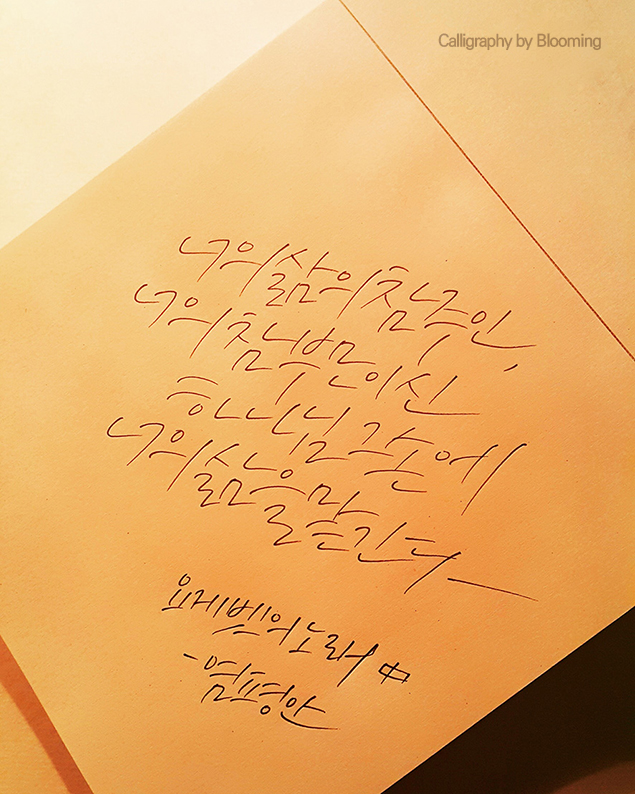 Calligraphy by Blooming
너의 삶의 참 주인,
너의 참 부모이신
하나님 그 손에
너의 삶을 맡긴다
요게벳의 노래 中
- 염평안